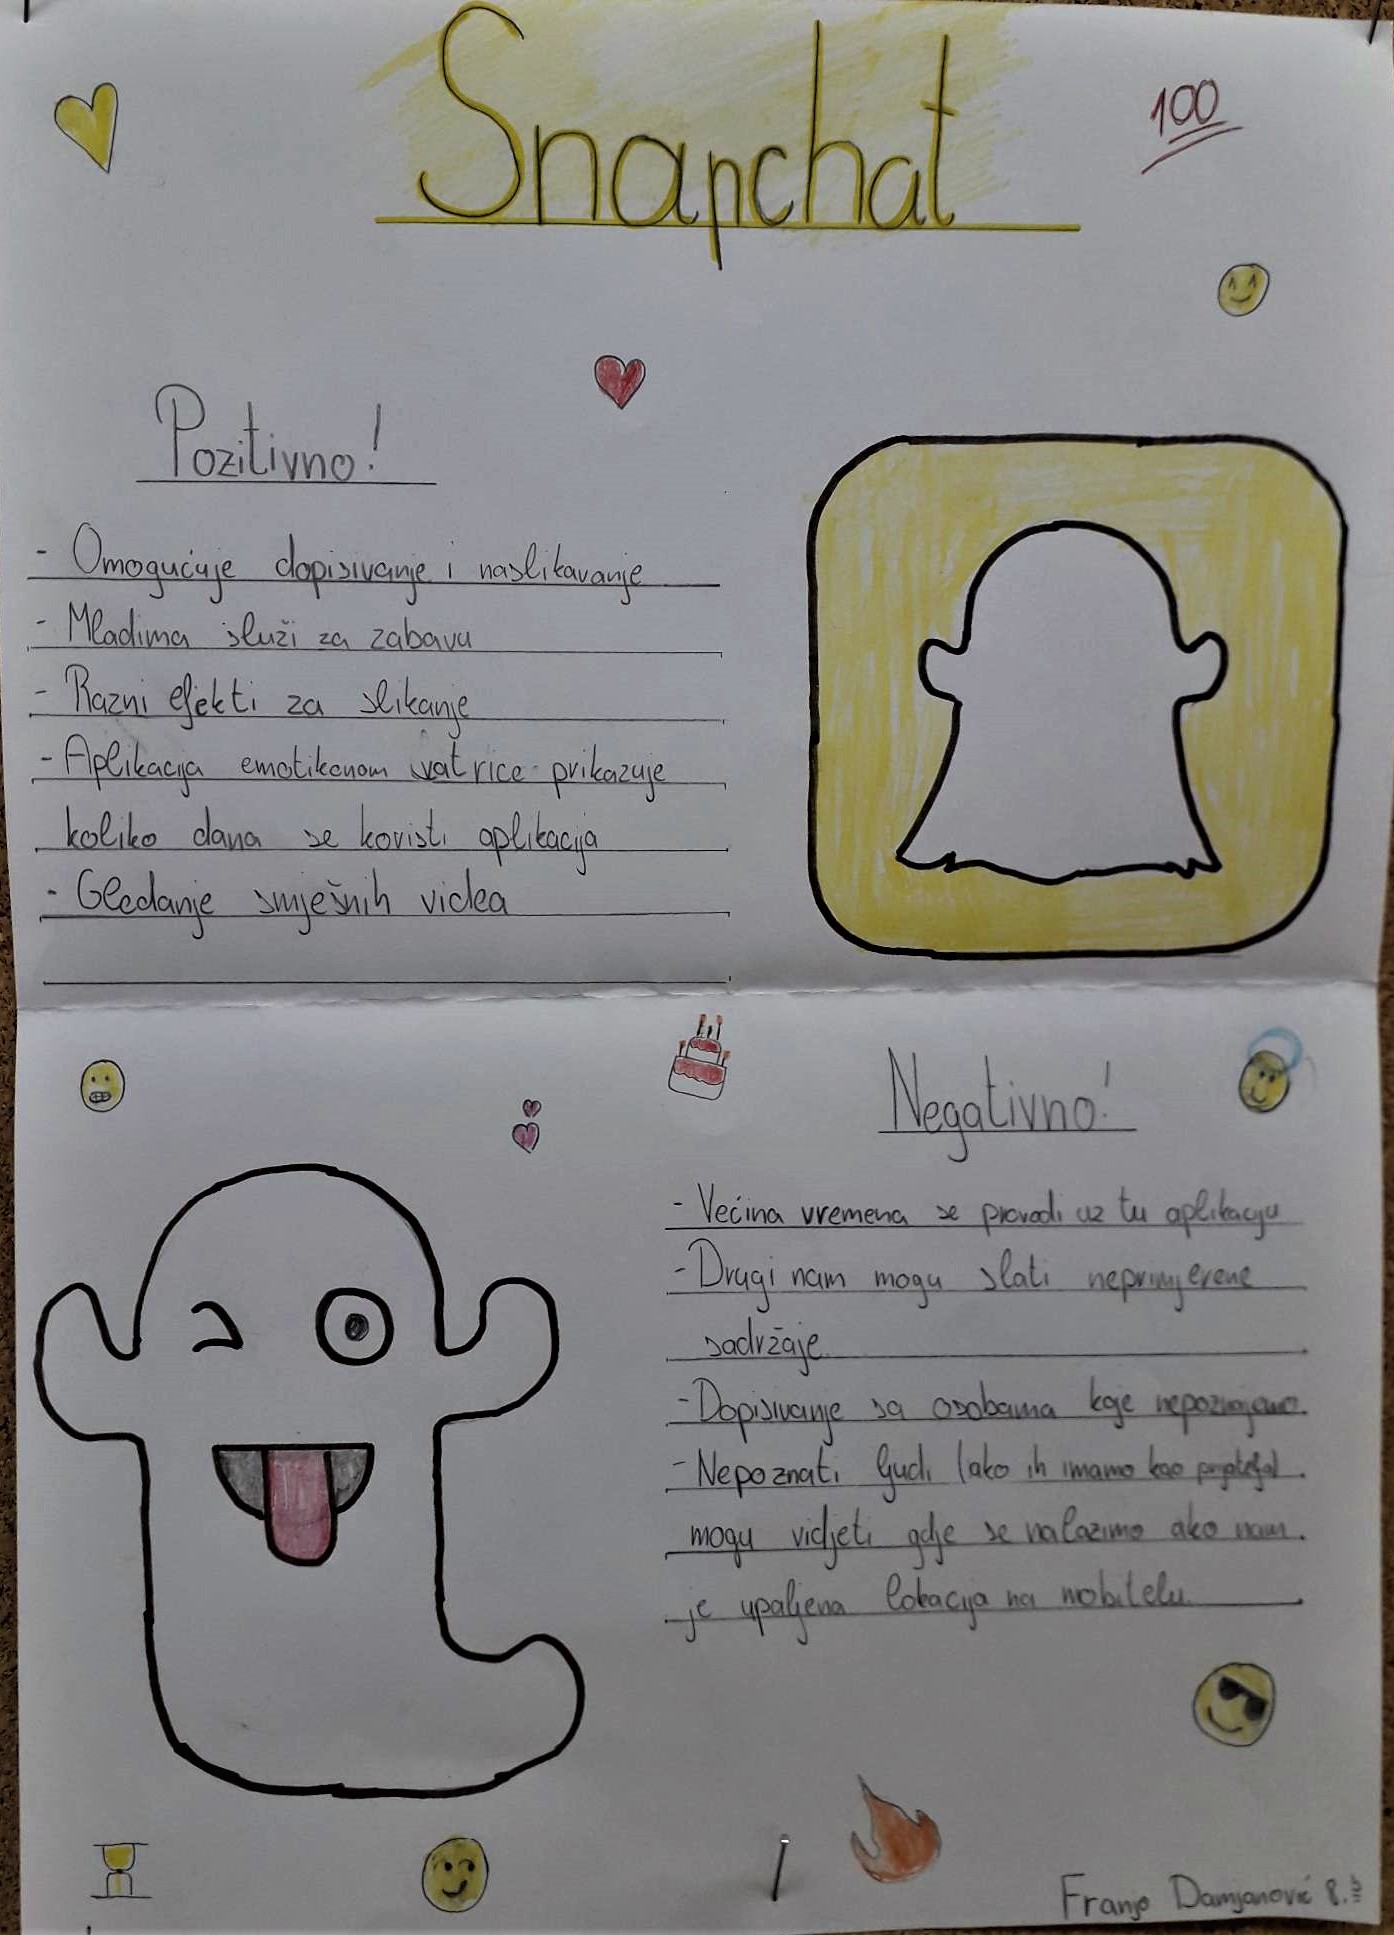 Snapchat
100
Pozitivno!
- Omogućuje dopisivanje i naslikavanje
- Mladima služi za zabavu
- Razni efekti za slikanje
- Aplikacija emotikonom vatrice prikazuje
koliko dana se koristi aplikacija
- Gledanje smješnih videa
Negativno!
- Većina vremena se provodi uz tu aplikaciju
- Drugi nam mogu slati neprimjerene
sadržaje.
- Dopisivanje sa osobama koje nepoznajemo.
- Nepoznati ljudi (ako ih imamo kao prijatelja)
mogu vidjeti gdje se nalazimo ako nam
je upaljena lokacija na mobitelu.
Franjo Damjanović 8.